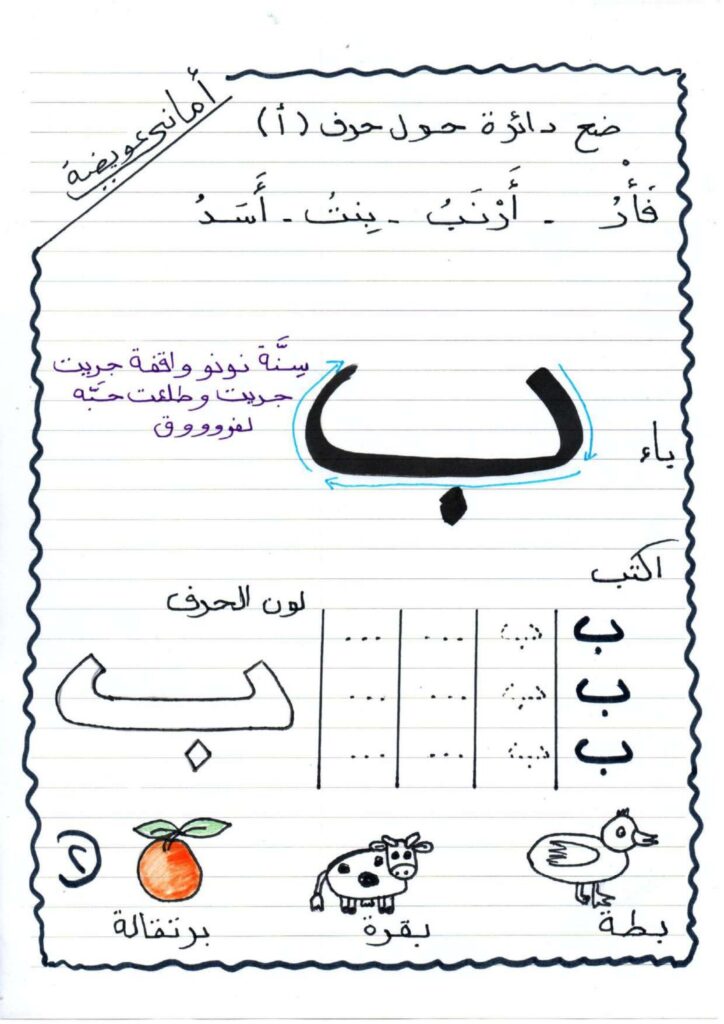 أماني عويضة
ضع دائرة حول حرف (أ)
فَأْرُ - أَرْنَبُ - بِنتُ - أَسَدُ
سِنَّة نونو واقفة جريت
جريت وطلعت حبَّه
لفوووق
ب
باء
اكتب
لون الحرف
ب ب ... ...
ب ب ... ...
ب ب ... ...
ب
بطة بقرة برتقالة
٢